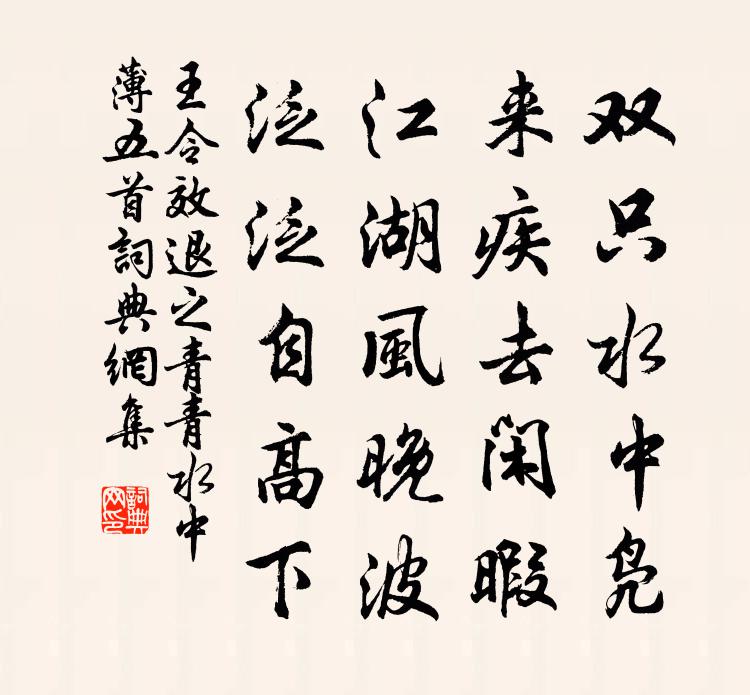 双只水中凫
来疾去闲暇
江湖風晚波
泛泛自高下
王令效退之青青水中
薄五首詞典網集
詞典网印